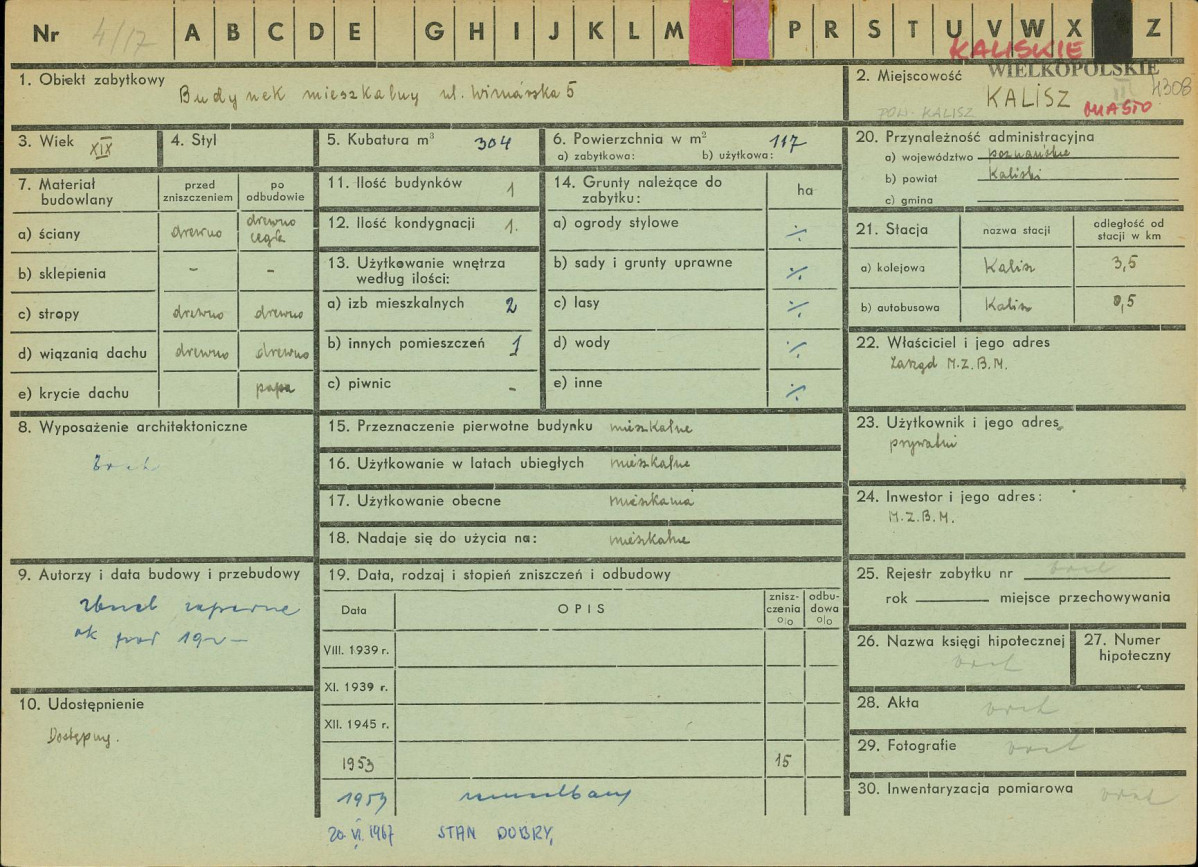 Nr 4/17 A B C D E G H I J K L M P R S T U V W X Z
KALISKIE
WIELKOPOLSKIE
1. Obiekt zabytkowy Budynek mieszkalny ul. Winiarska 5
2. Miejscowość KALISZ MIASTO 4308
POW. KALISZ
3. Wiek XIX
4. Styl
5. Kubatura m³ 304
6. Powierzchnia w m² 117
a) zabytkowa: b) użytkowa:
7. Materiał budowlany
przed zniszczeniem
po odbudowie
a) ściany drewno drewno cegła
b) sklepienia – –
c) stropy drewno drewno
d) wiązania dachu drewno drewno
e) krycie dachu papa
8. Wyposażenie architektoniczne
brak
9. Autorzy i data budowy i przebudowy
10. Udostępnienie
Dostępny.
11. Ilość budynków 1
12. Ilość kondygnacji 1.
13. Użytkowanie wnętrza według ilości:
a) izb mieszkalnych 2
b) innych pomieszczeń 1
c) piwnic -
14. Grunty należące do zabytku: ha
a) ogrody stylowe ·/.
b) sady i grunty uprawne ·/.
c) lasy ·/.
d) wody ·/.
e) inne ·/.
15. Przeznaczenie pierwotne budynku mieszkalne
16. Użytkowanie w latach ubiegłych mieszkalne
17. Użytkowanie obecne mieszkania
18. Nadaje się do użycia na: mieszkalne
19. Data, rodzaj i stopień zniszczeń i odbudowy
Data OPIS znisz-czenia o|o odbu-dowa o|o
VIII. 1939 r.
XI. 1939 r.
XII. 1945 r.
1953 15
1959
20. VI. 1967 STAN DOBRY,
20. Przynależność administracyjna
a) województwo poznańskie
b) powiat kaliski
c) gmina
21. Stacja nazwa stacji odległość od stacji w km
a) kolejowa Kalisz 3,5
b) autobusowa Kalisz 0,5
22. Właściciel i jego adres
Zarząd M.Z.B.M.
23. Użytkownik i jego adres
prywatni
24. Inwestor i jego adres:
M.Z.B.M.
25. Rejestr zabytku nr brak
rok miejsce przechowywania
26. Nazwa księgi hipotecznej
brak
27. Numer hipoteczny
28. Akta brak
29. Fotografie brak
30. Inwentaryzacja pomiarowa brak